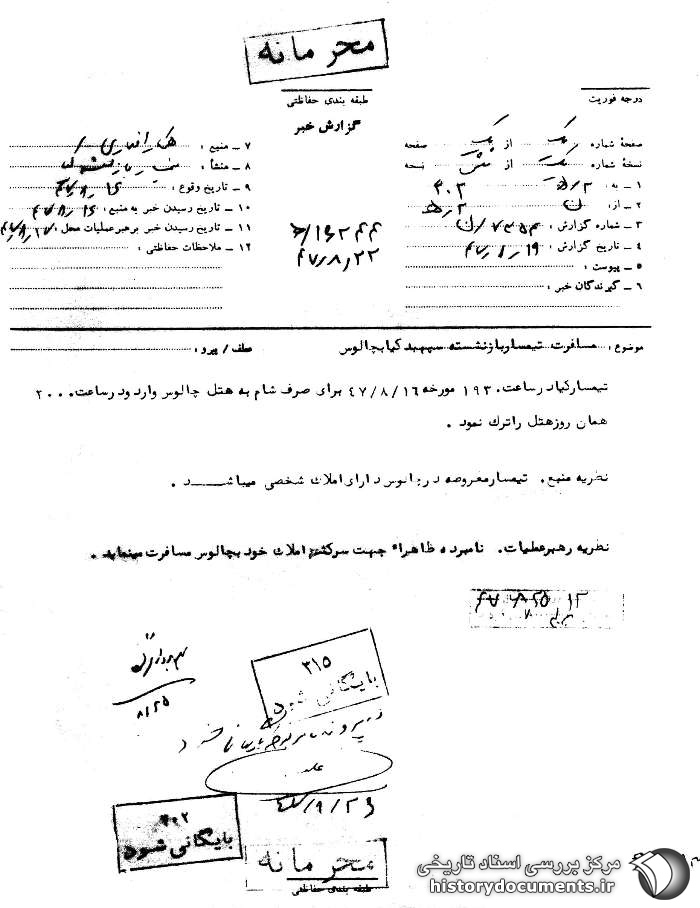 محرمانه
طبقه بندی حفاظتی
درجه فوریت
گزارش خبر
صفحهٔ شماره یک از یک صفحه
نسخهٔ شماره یک از شش نسخه
۱ - به : ۳۰۲
۲ - از:
۳ - شماره گزارش :
۴ - تاریخ گزارش : ۴۷/۸/۱۹
۵ - پیوست :
۶ - گیرندگان خبر :
۷ - منبع :
۸ - منشأ :
۹ - تاریخ وقوع : ۴۷/۸/۱۶
۱۰ - تاریخ رسیدن خبر به منبع : ۴۷/۸/۱۶
۱۱ - تاریخ رسیدن خبر برهبر عملیات محل : ۴۷/۸/۱۷
۱۲ - ملاحظات حفاظتی :
۴۷/۸/۲۲
موضوع : مسافرت تیمسار بازنشسته سپهبد کیا بچالوس
عطف / پیرو :
تیمسارکیاد رساعت. ۱۹۳ مورخه ۴۷/۸/۱۶ برای صرف شام به هتل چالوس وارد ود رساعت. ۲۰۰
همان روزهتل راترك نمود .
نظریه منبع. تیمسارمعروضه در چالوس دارای املاك شخصی میباشــــد .
نظریه رهبرعملیات. نامبرده ظاهراً جهت سرکشی املاك خود بچالوس مسافرت مینماید .
۸/۲۵
۳۱۵
بایگانی شود
۴۷/۹/۲۶
۳۰۲
بایگانی شود
محرمانه
طبقه بندی حفاظتی
مرکز بررسی اسناد تاریخی
historydocuments.ir